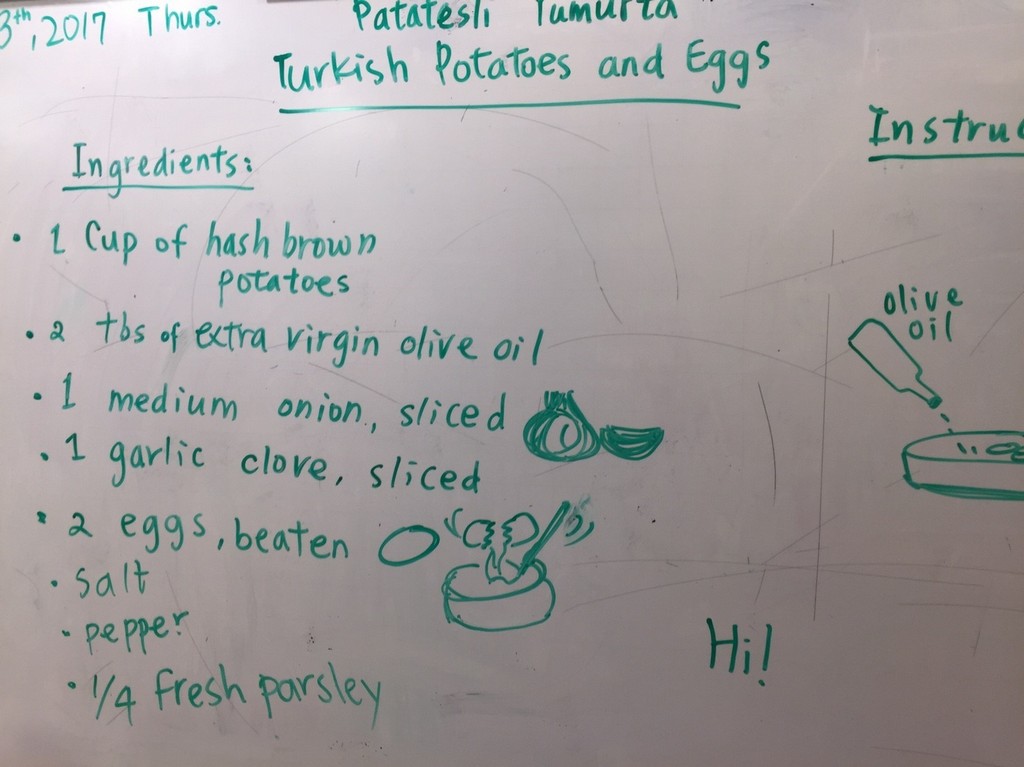 3th, 2017 Thurs.
Patatesli Yumurta
Turkish Potatoes and Eggs
Ingredients:
• 1 Cup of hash brown
potatoes
• 2 tbs of extra virgin olive oil
• 1 medium onion, sliced
• 1 garlic clove, sliced
• 2 eggs, beaten
• salt
• pepper
• 1/4 fresh parsley
Instruc
olive
oil
Hi!